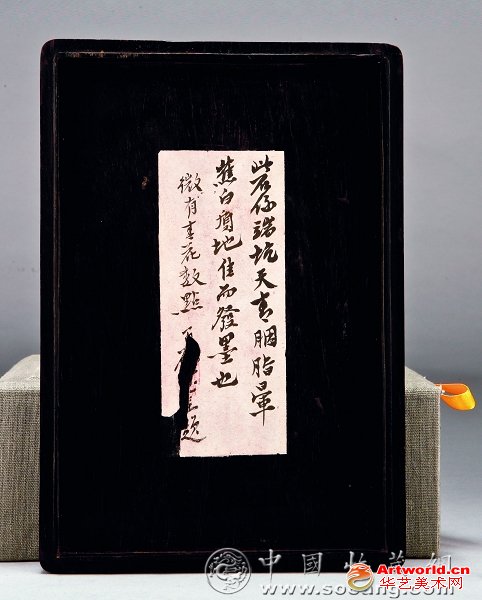 此石係端坑天青胭脂暈
蕉白質地佳而發墨也
微有青花數點
題
中國收藏網
www.socang.com
Artworld.cn
华艺美术网